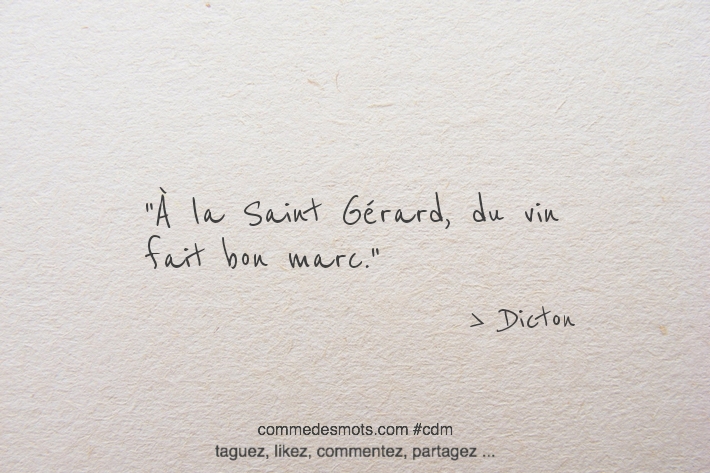 "À la Saint Gérard, du vin
fait bon marc."
> Dicton
commedesmots.com #cdm
taguez, likez, commentez, partagez ...